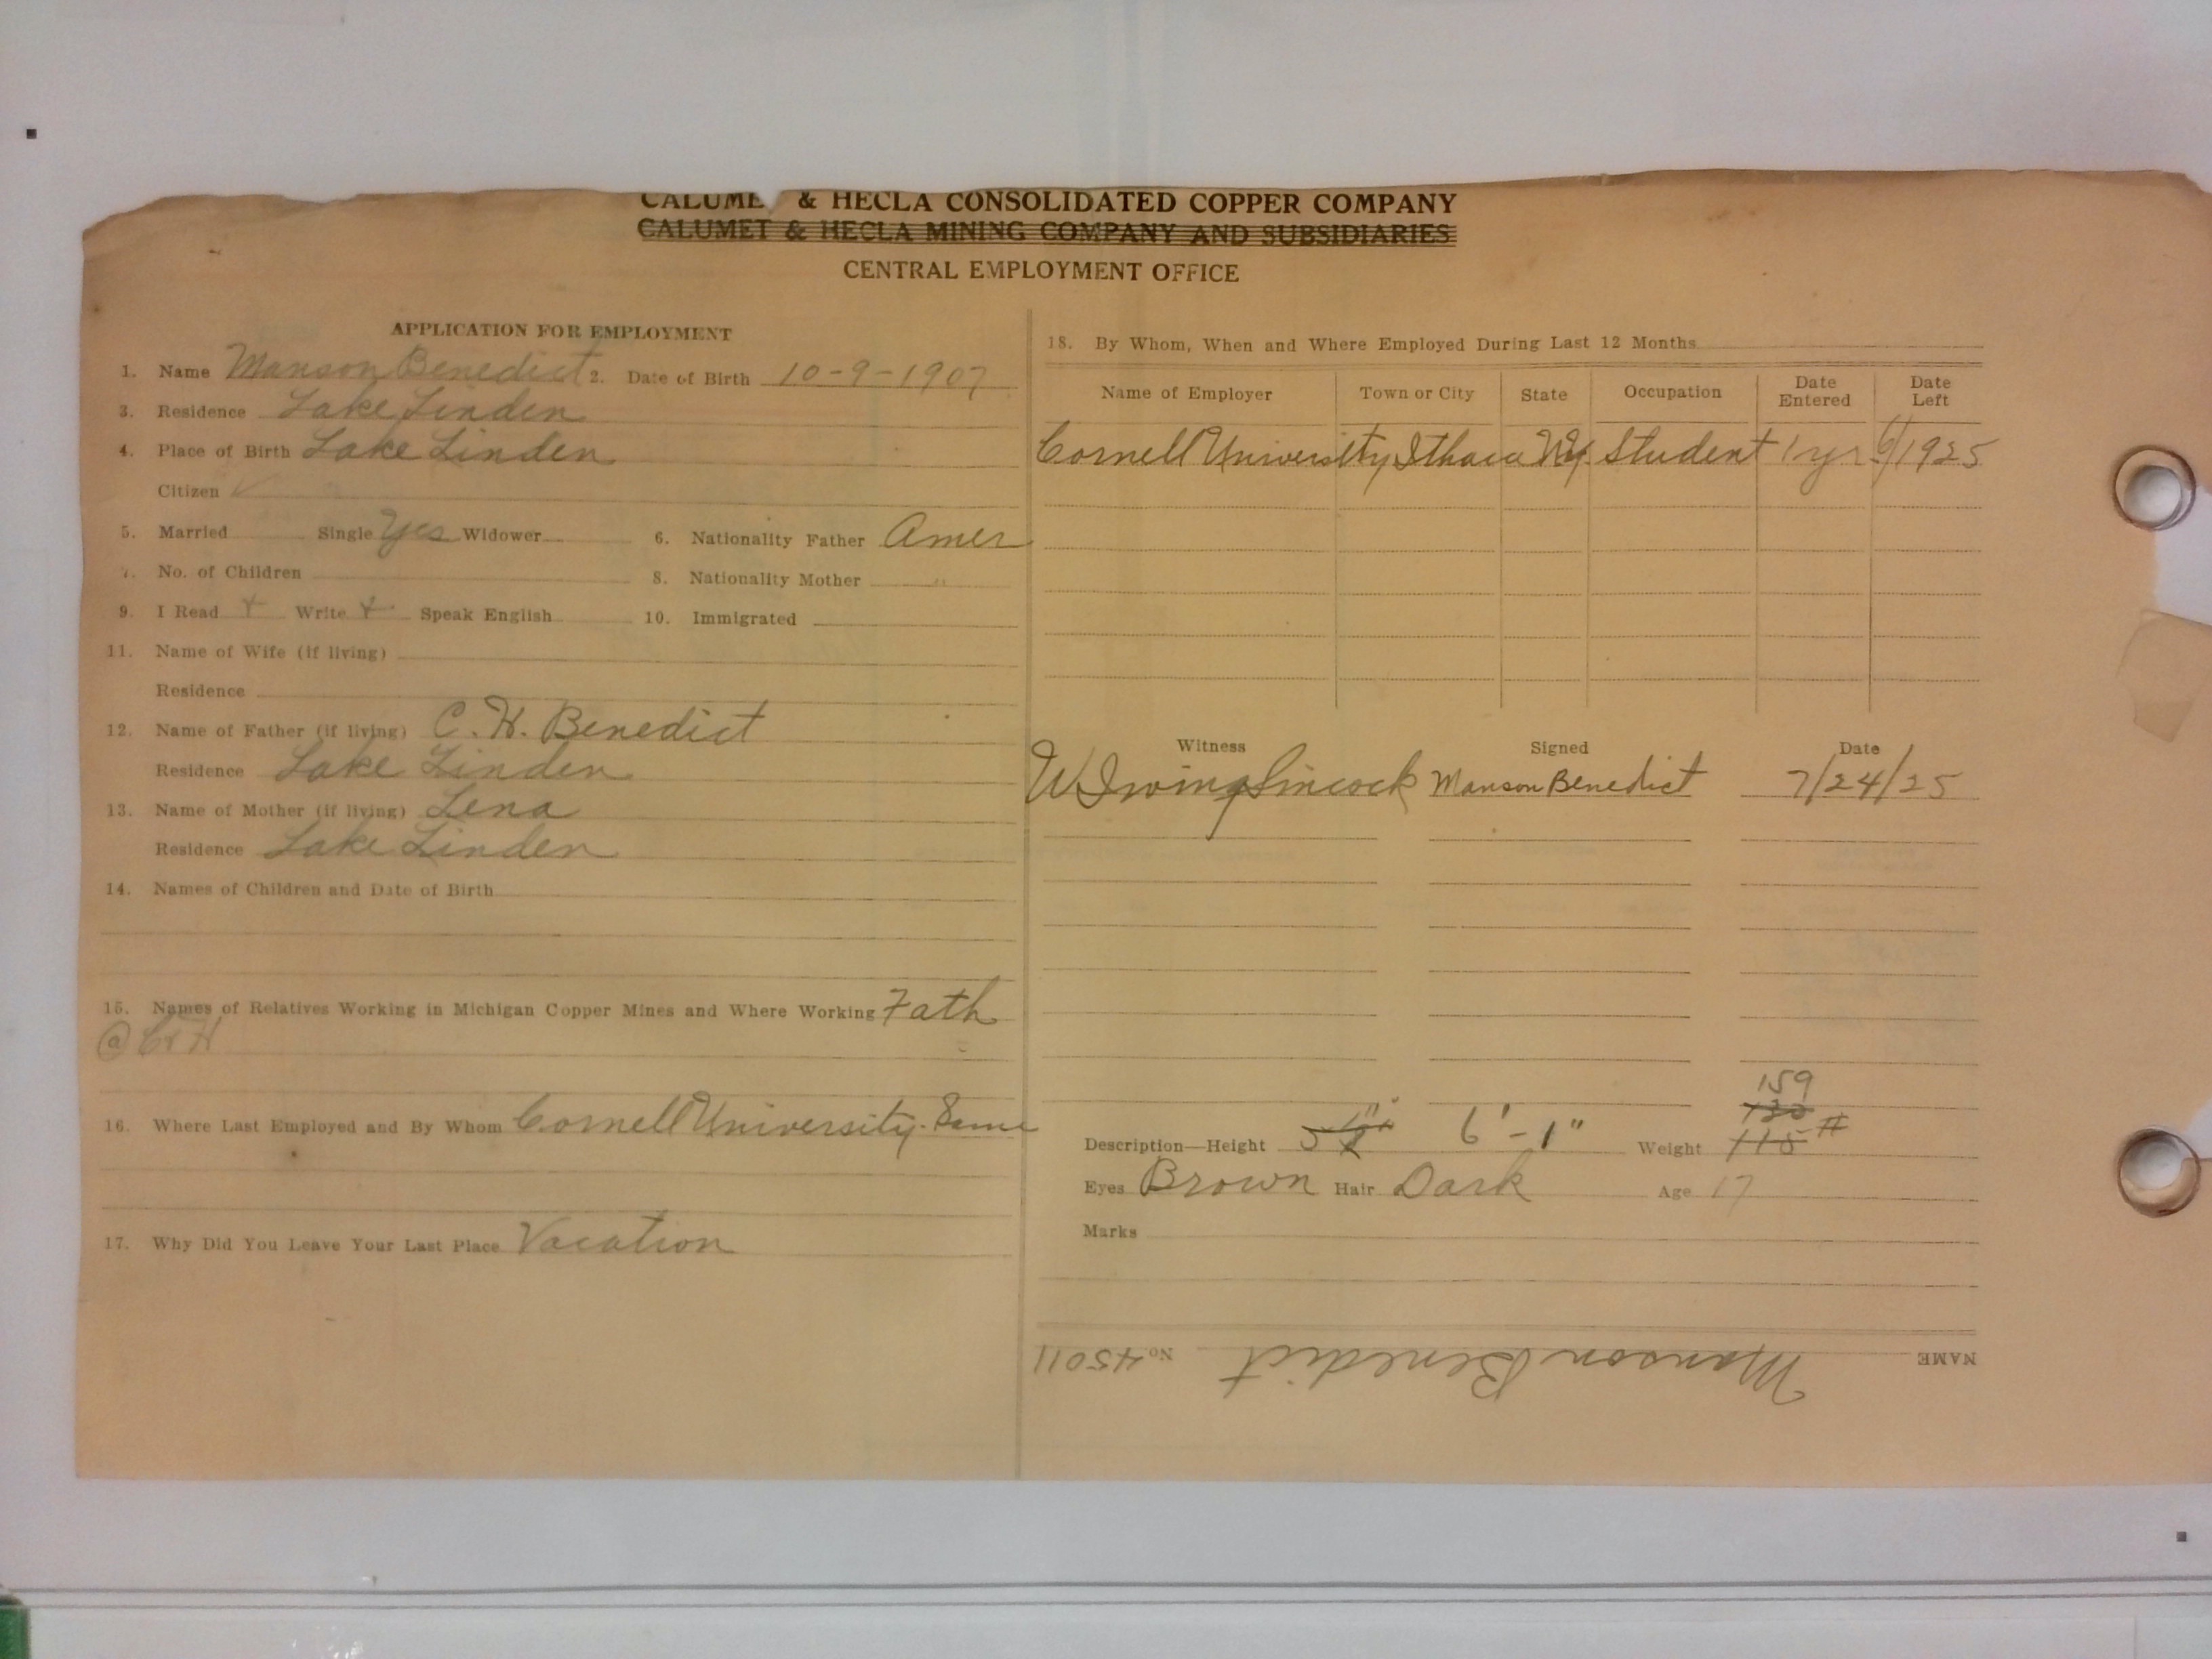 CALUME & HECLA CONSOLIDATED COPPER COMPANY
CALUMET & HECLA MINING COMPANY AND SUBSIDIARIES
CENTRAL EMPLOYMENT OFFICE
APPLICATION FOR EMPLOYMENT
1. Name Manson Benedict 2. Date of Birth 10-9-1907
3. Residence Lake Linden
4. Place of Birth Lake Linden
Citizen ✓
5. Married Single Yes Widower 6. Nationality Father Amer
7. No. of Children 8. Nationality Mother "
9. I Read + Write + Speak English 10. Immigrated
11. Name of Wife (if living)
Residence
12. Name of Father (if living) C. H. Benedict
Residence Lake Linden
13. Name of Mother (if living) Lena
Residence Lake Linden
14. Names of Children and Date of Birth
15. Names of Relatives Working in Michigan Copper Mines and Where Working Fath
@ C & H
16. Where Last Employed and By Whom Cornell University. Same
17. Why Did You Leave Your Last Place Vacation
18. By Whom, When and Where Employed During Last 12 Months
Name of Employer Town or City State Occupation Date Entered Date Left
Cornell University Ithaca Ny. Student 1 yr 6/1925
Witness Signed Date
W Irving Sincock Manson Benedict 7/24/25
159
Description—Height 6'-1" Weight 115 #
Eyes Brown Hair Dark Age 17
Marks
NAME Manson Benedict No 45011